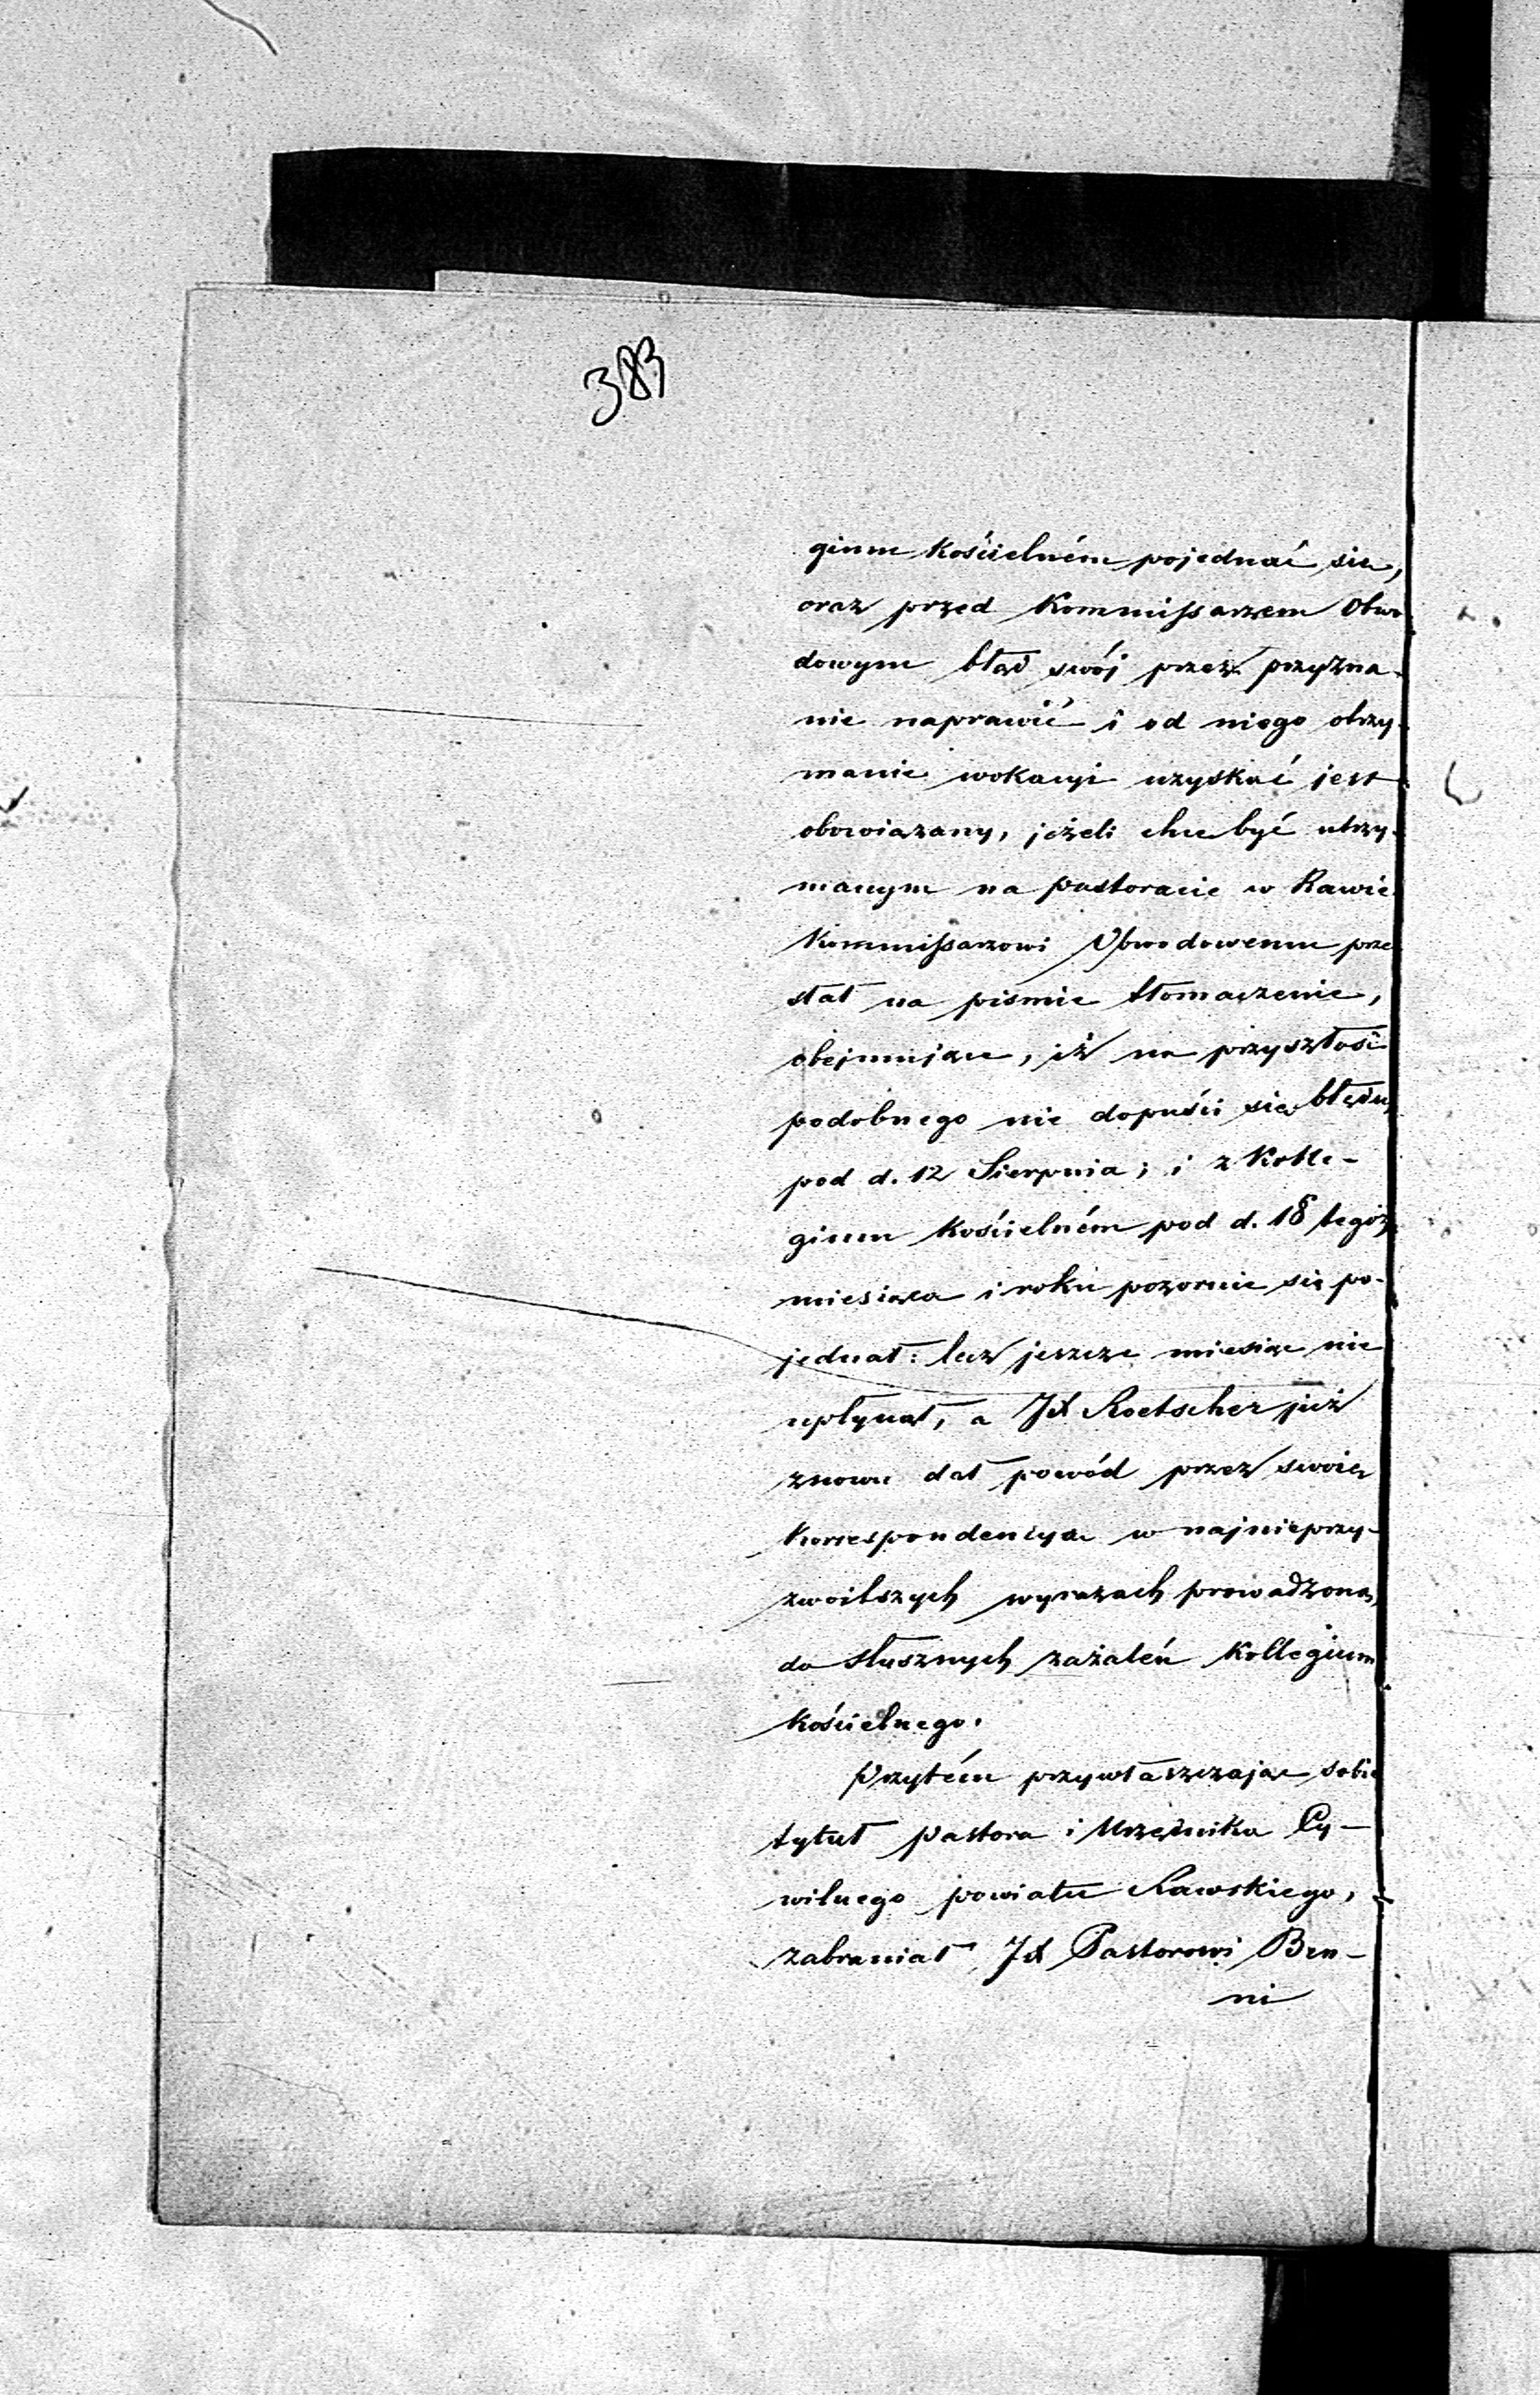 383
gium kościelném pojednać się,
oraz przed Kommissarzem Obwo
dowym błąd swój przez przyzna-
nie naprawić i od niego otrzy-
manie wokacyi uzyskać jest
obowiązany, jeżeli chce być utrzy-
manym na pastoracie w Rawie
Kommissarzowi Obwodowemu prze
słał na piśmie tłomaczenie,
obejmujące, iż na przyszłość
podobnego nie dopuści się błędu,
pod d. 12 Sierpnia; i z Kolle-
gium Kościelném pod d. 18 tegoż
miesiąca i roku pozornie się po-
jednał: lecz jeszcze miesiąc nie
upłynął, a JX Roetscher już
znowu dał powód przez swoią
korrespondencyą w najnieprzy-
zwoitszych wyrazach prowadzoną,
do słusznych zażaleń Kollegium
Kościelnego.
Przytém przywłaszczając sobie
tytuł Pastora i Urzędnika Cy-
wilnego powiatu Rawskiego,
zabraniał JX Pastorowi Bru-
ni